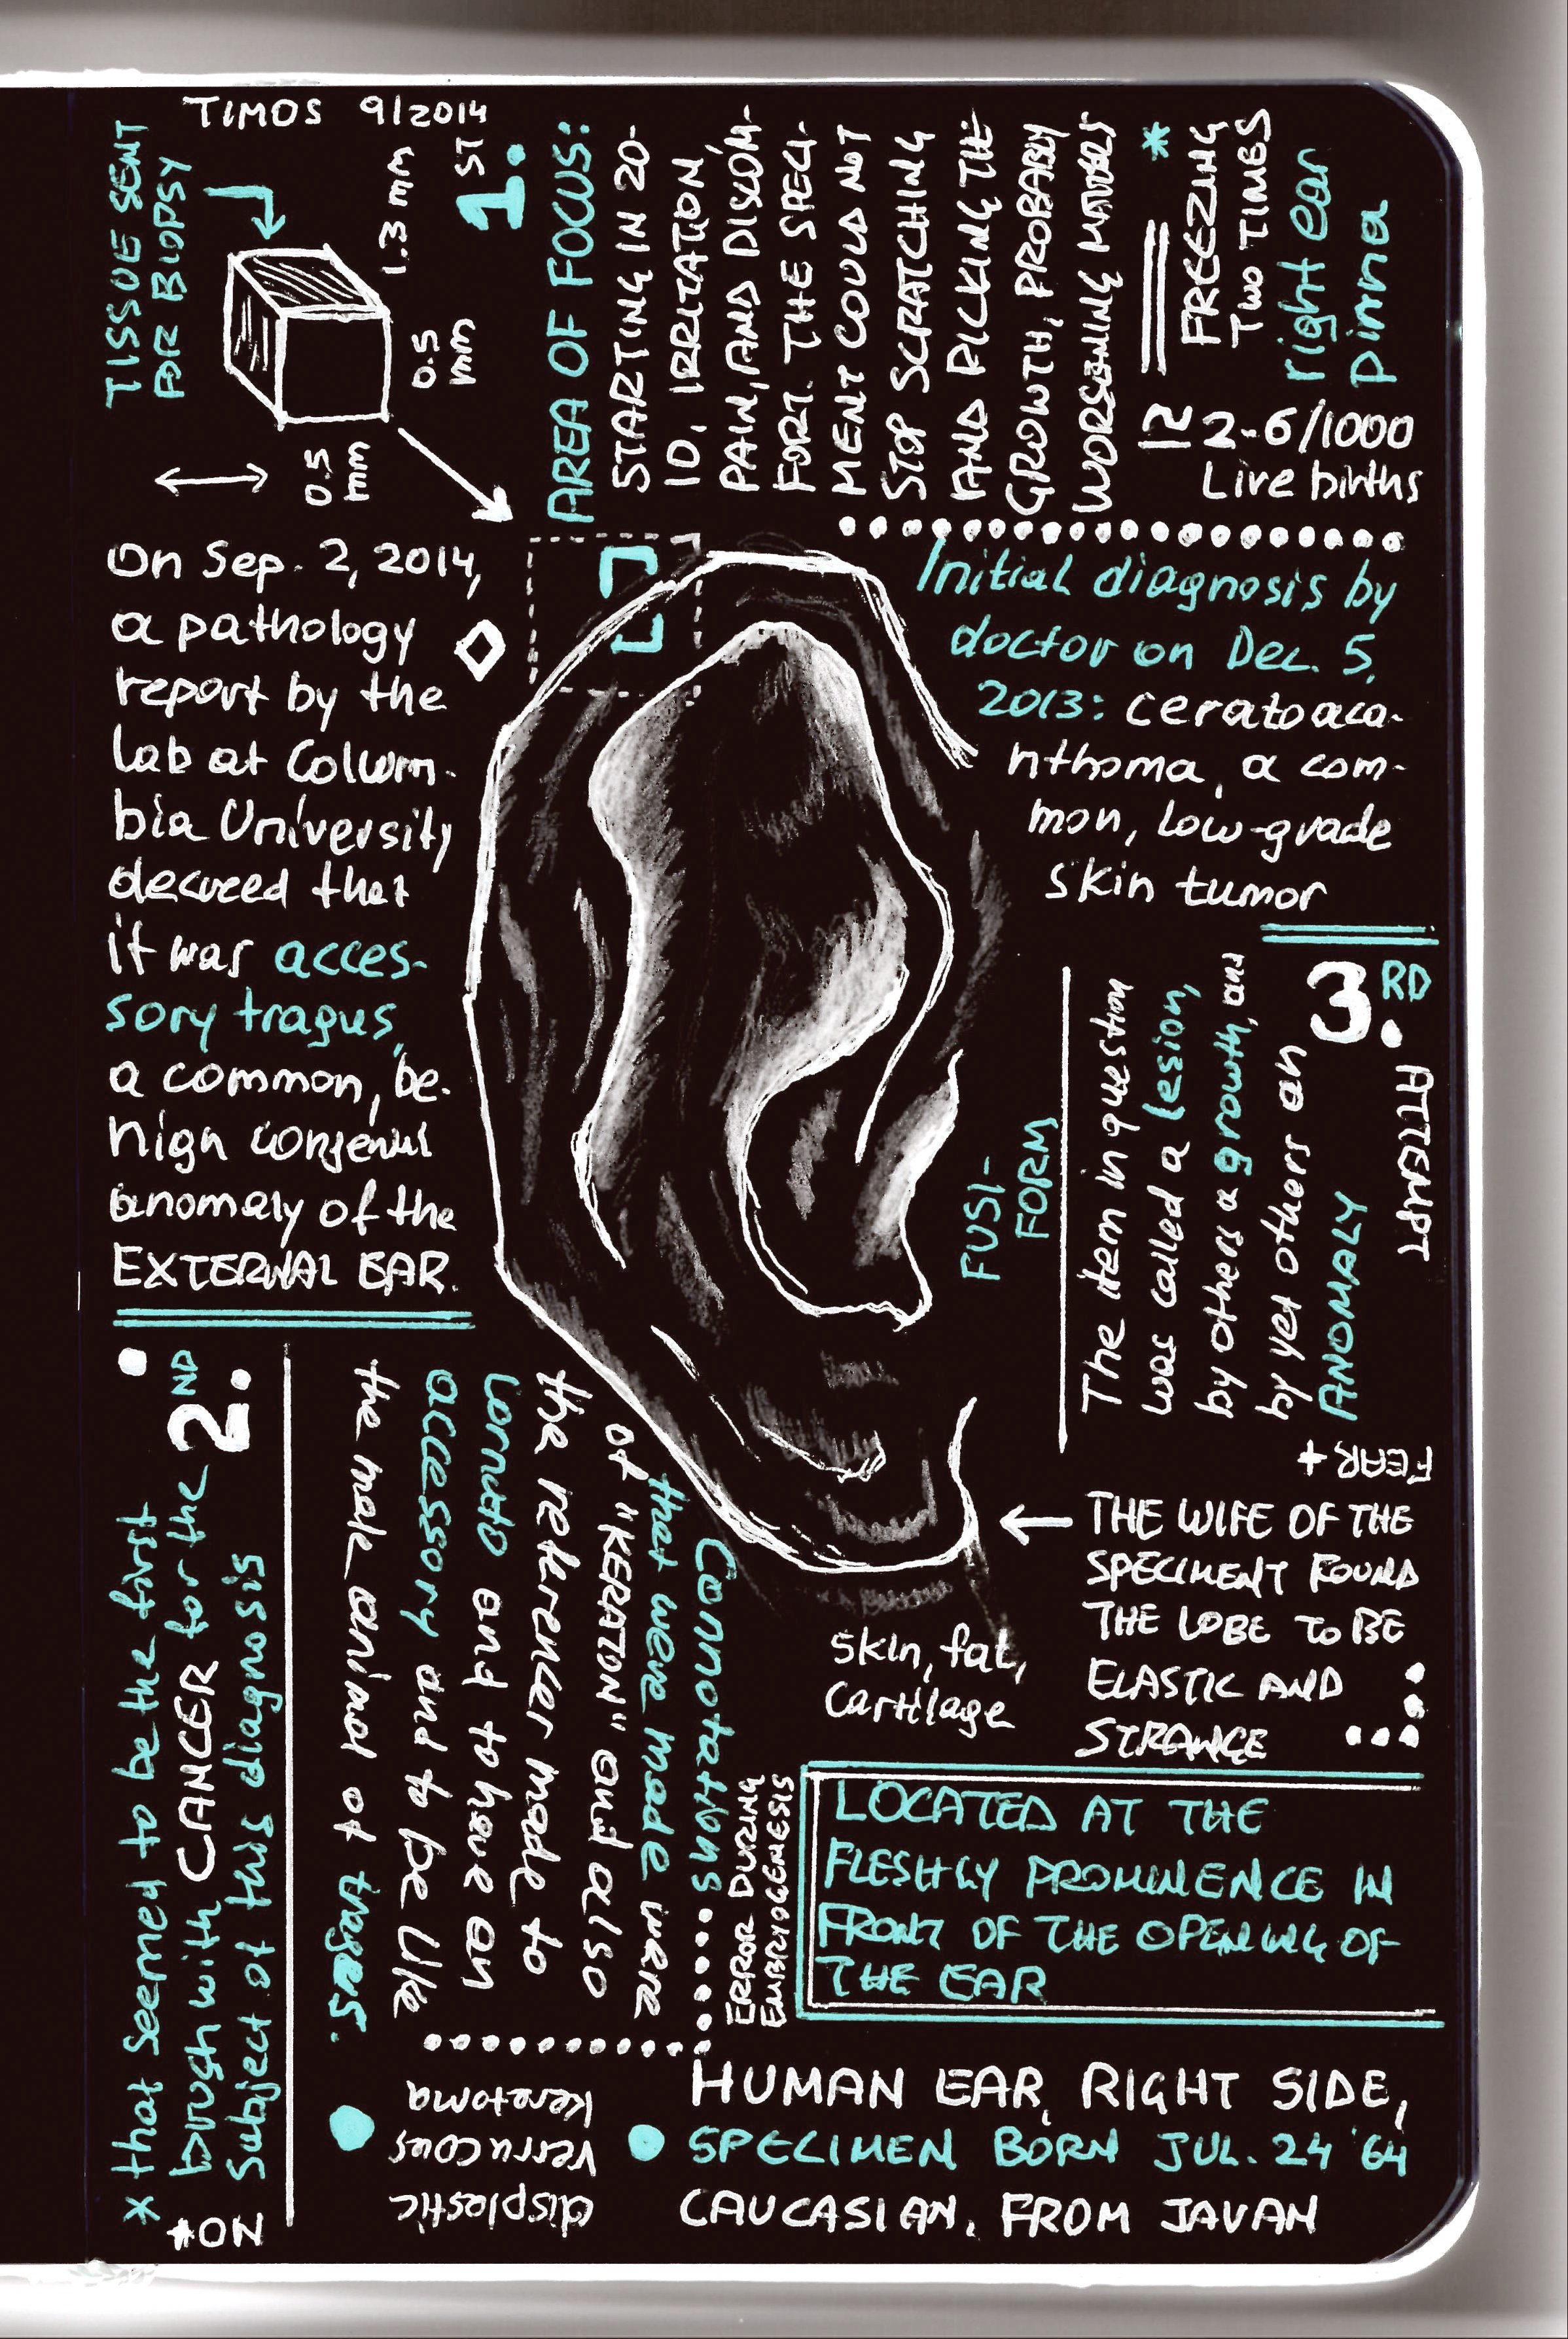 TIMOS 9/2014
TISSUE SENT
FOR BIOPSY
1.3 mm
0.5
mm
0.5
mm
1. ST
AREA OF FOCUS:
STARTING IN 20-
10, IRRITATION,
PAIN, AND DISCOM-
FORT. THE SPECI-
MENT COULD NOT
STOP SCRATCHING
AND PICKING THE
GROWTH, PROBABLY
WORSENING MATTERS
*
FREEZING
TWO TIMES
right ear
pinna
2-6/1000
Live births
On Sep. 2, 2014,
a pathology
report by the
lab at Colum-
bia University
decreed that
it was acces-
sory tragus,
a common, be-
nign
anomaly of the
EXTERNAL EAR.
Initial diagnosis by
doctor on Dec. 5,
2013: ceratoaca-
nthoma, a com-
mon, low-grade
skin tumor
3. RD
ATTEMPT
FUSI-
FORM
The item in question
was called a lesion,
by others a growth, and
by yet others an
ANOMALY
FEAR +
THE WIFE OF THE
SPECIMENT FOUND
THE LOBE TO BE
ELASTIC AND
STRANGE
skin, fat,
cartilage
2. ND
* that seemed to be the first
brush with CANCER for the
subject of this diagnosis
NO*
Connotations
that were made were
of "KERATON" and also
the reference made to
and to have an
accessory and to be like
the male animal of tragus.
ERROR DURING
EMBRYOGENESIS
LOCATED AT THE
FLESHLY PROMINENCE IN
FRONT OF THE OPENING OF
THE EAR
displastic
verrucous
keratoma
HUMAN EAR, RIGHT SIDE,
SPECIMEN BORN JUL. 24 '64
CAUCASIAN, FROM JAVAN